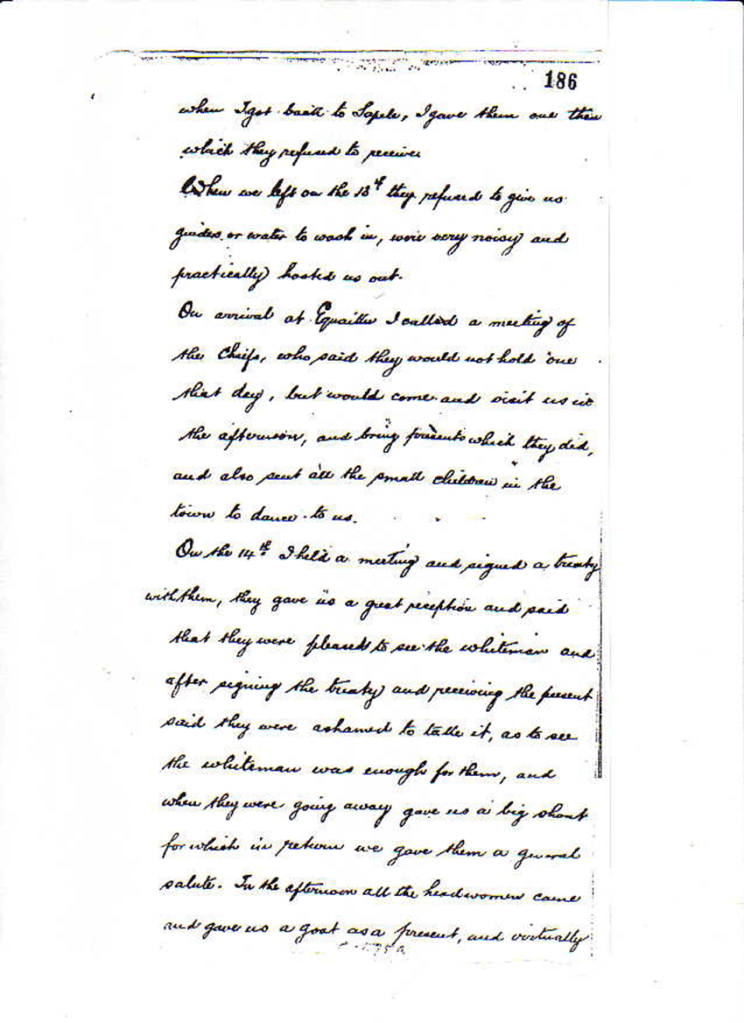 186
when I got back to Sapele, I gave them one then
which they refused to receive
When we left on the 13th they refused to give us
guides or water to wash in, were very noisy and
practically hooted us out.
On arrival at Equaittu I called a meeting of
the Chiefs, who said they would not hold one
that day, but would come and visit us in
the afternoon, and bring presents which they did,
and also sent all the small children in the
town to dance to us.
On the 14th I held a meeting and signed a treaty
with them, they gave us a great reception and said
that they were pleased to see the whiteman and
after signing the treaty and receiving the present
said they were ashamed to take it, as to see
the whiteman was enough for them, and
when they were going away gave us a big shout
for which in return we gave them a general
salute. In the afternoon all the headwomen came
and gave us a goat as a present, and virtually